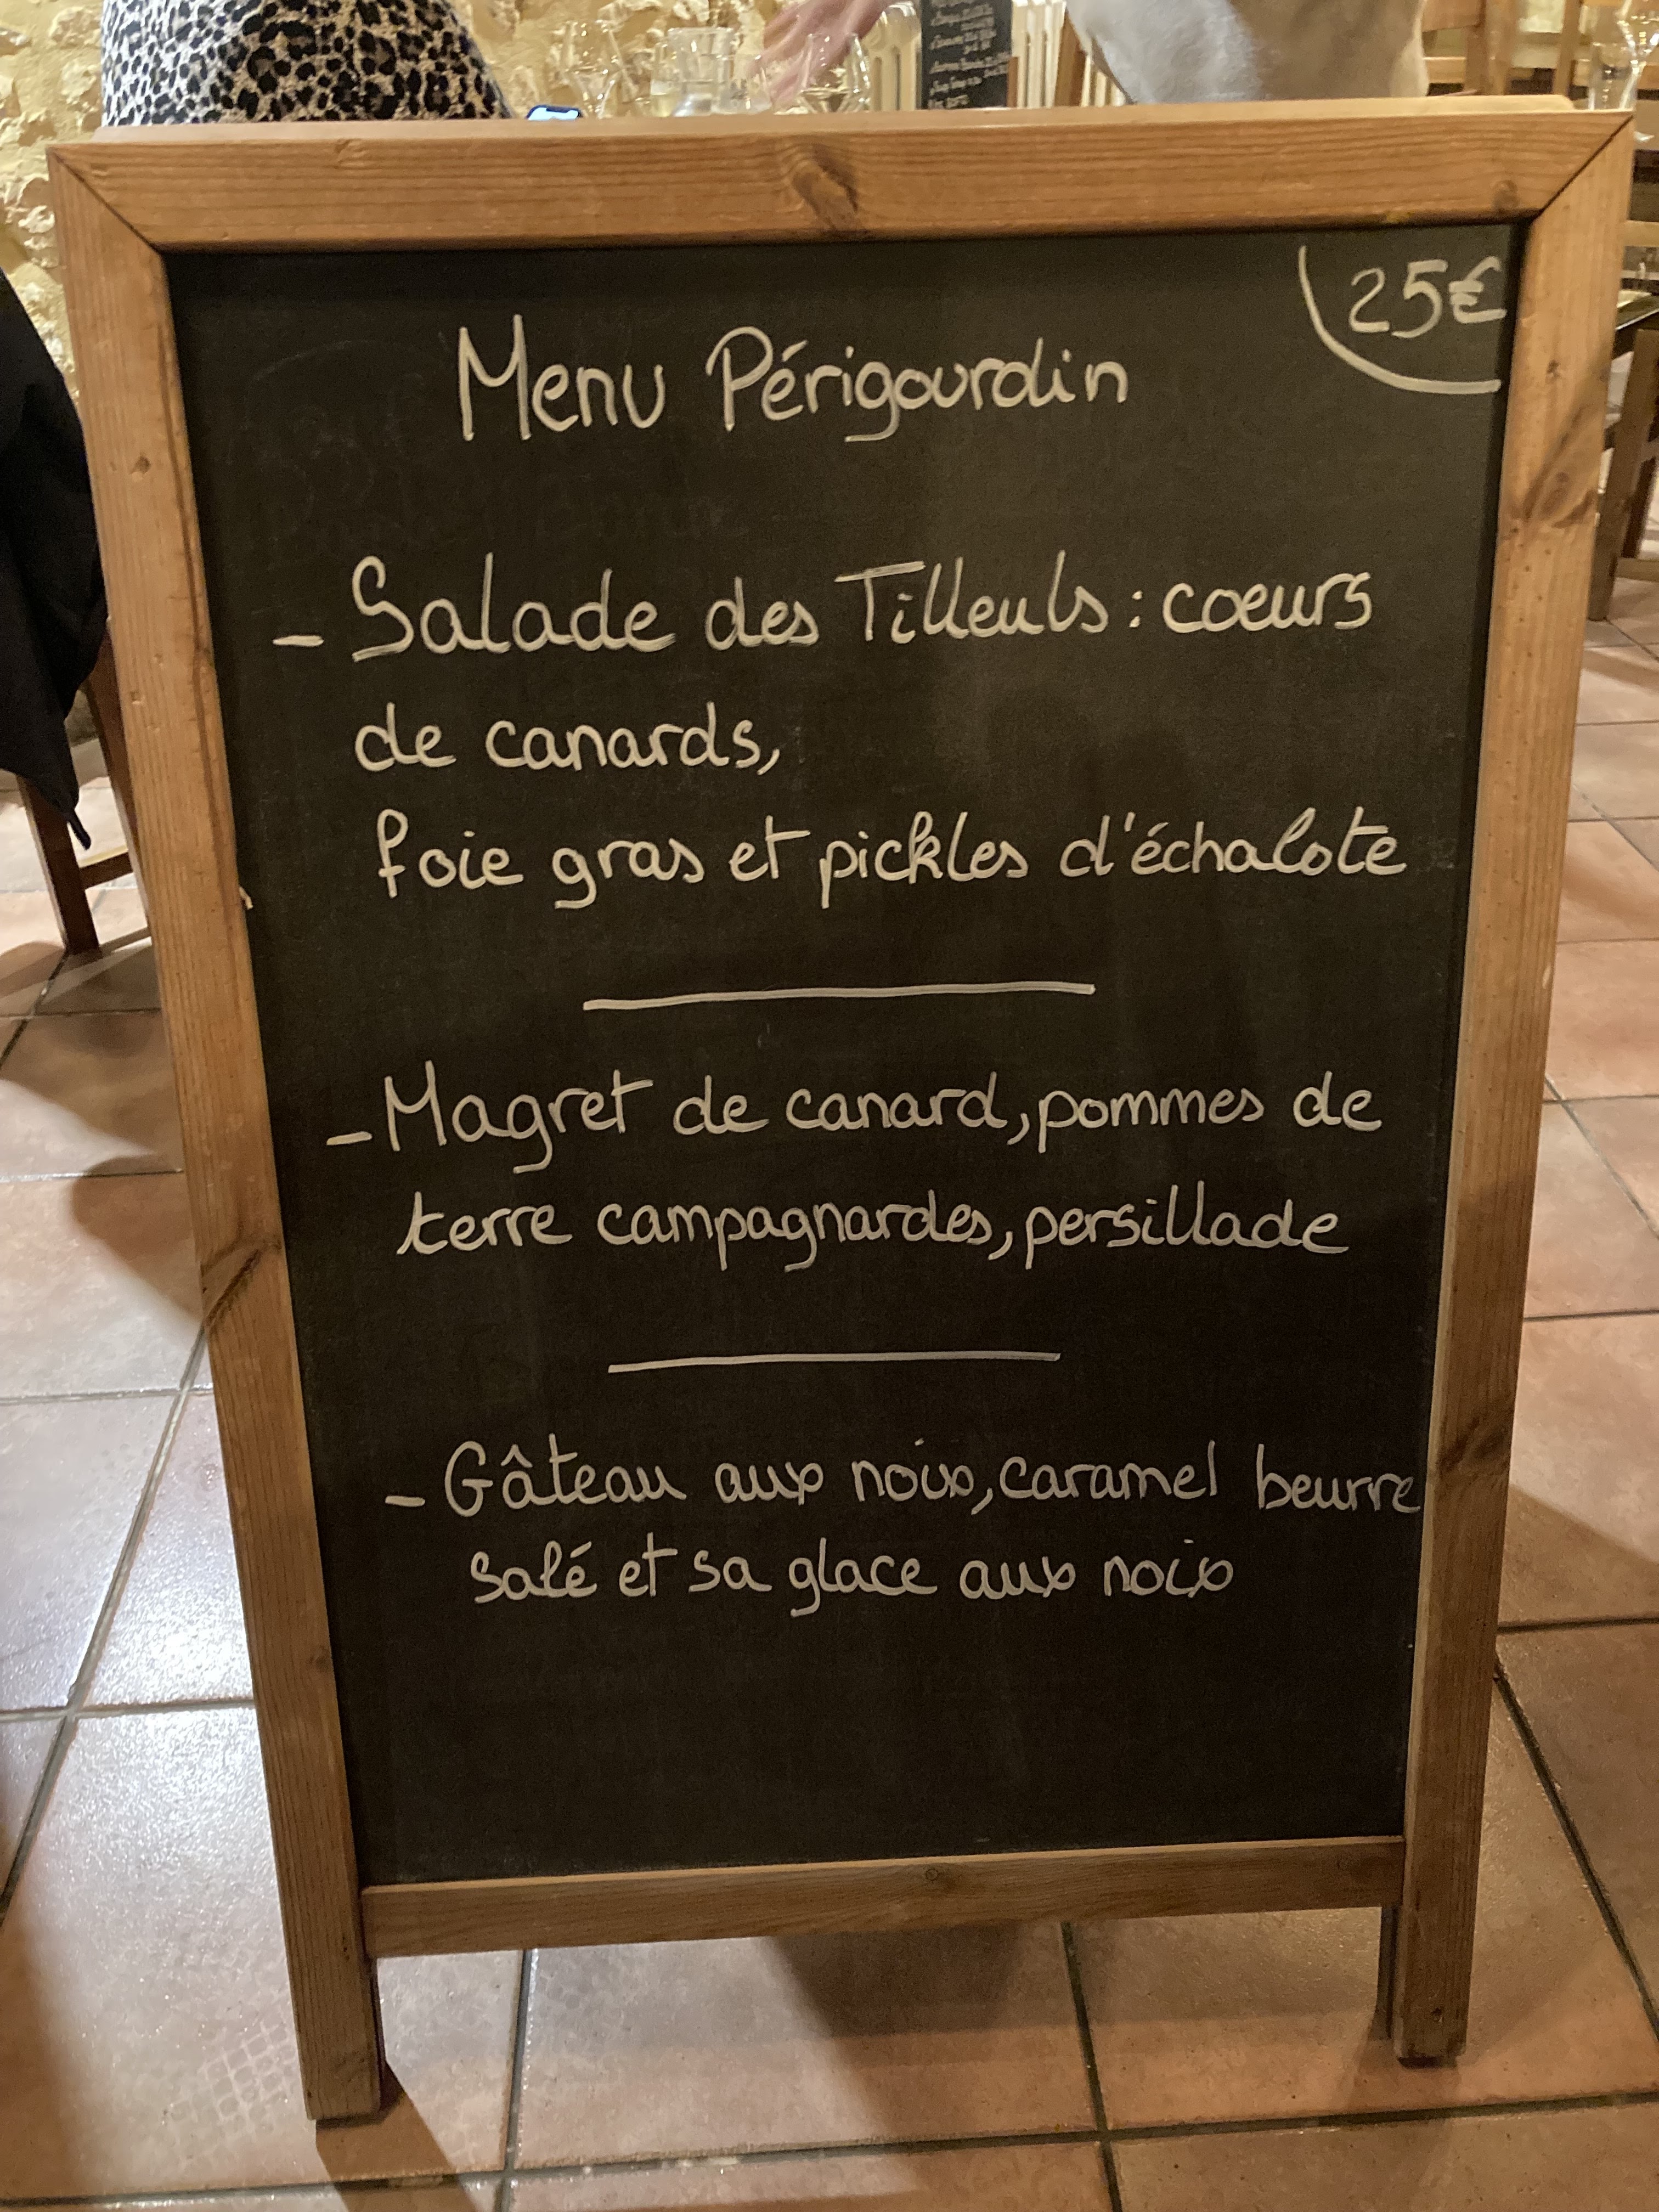 25€
Menu Périgourdin
- Salade des Tilleuls : coeurs
de canards,
foie gras et pickles d'échalote
- Magret de canard, pommes de
terre campagnardes, persillade
- Gâteau aux noix, caramel beurre
salé et sa glace aux noix